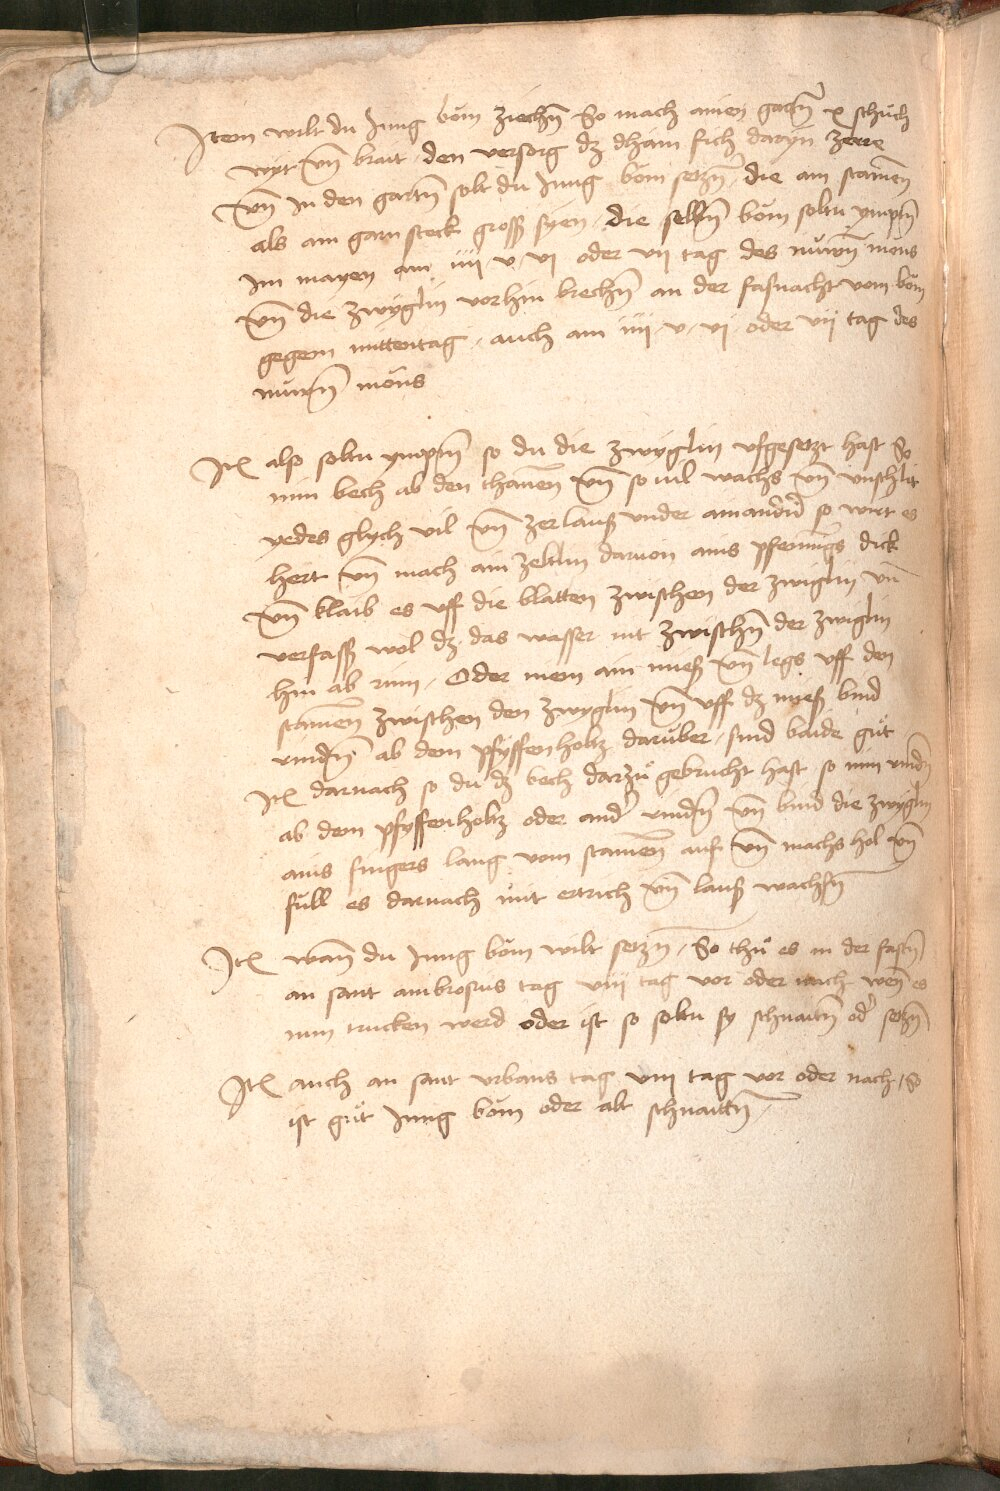 Item wilt du Jung böm ziechn̄ So mach ainen gartn̄ x schůch
wyt vn̄ brait den versorg dz dhain fich daryn zerre
vn̄ In den gartn̄ solt du Jung böm setzn̄ die am stamen̄
als ain garn steck gross syen die selbn̄ böm soltu ympfn̄
Im mayen am iiii v vi oder vii tag des nuwn̄ mōns
vn̄ die zwyglin vorhin brechn̄ an der fasnacht vom böm
gegem mittentag auch am iiii v vi oder vii tag des
nuwn̄ mōns
Itē also soltu ympfn̄ so du die zwyglin vfgesetzt hast So
nim bech ab den thanen̄ vn̄ so vil wachs vn̄ vnschlit
yedes glych vil vn̄ zerlauß vnder ainandr̄ so wirt es
hert vn̄ mach ain zeltlin daruon ains pfennings dick
vn̄ klaib es vff die blatten zwischen der zwiglin vn̄
verfass wol dz das wasser nit zwischn̄ der zwiglin
hin ab rinn Oder niem ain mieß vn̄ legs vff den
stamen̄ zwischen den zwyglin vn̄ vff dz mieß bind
rindn̄ ab dem pfyffenholtz darüber sind baide gůt
Itē darnach so du dz bech darzů gebrucht hast so nim rindn̄
ab dem pfyffenholtz oder andr̄ rindn̄ vn̄ bind die zwyglin
ains fingers lang vom stamen̄ auf vn̄ machs hol vn̄
full es darnach mit ertrich vn̄ lauß wachsn̄
Itē wan̄ du Jung böm wilt setzn̄ So thů es in der fastn̄
an sant ambrosius tag viii tag vor oder nach wen̄ es
nun trucken werd oder ist so soltu sy schnaitn̄ odr̄ setzn̄
Itē auch an sant vrbans tag viii tag vor oder nach So
ist gůt Jung böm oder alt schnaittn̄